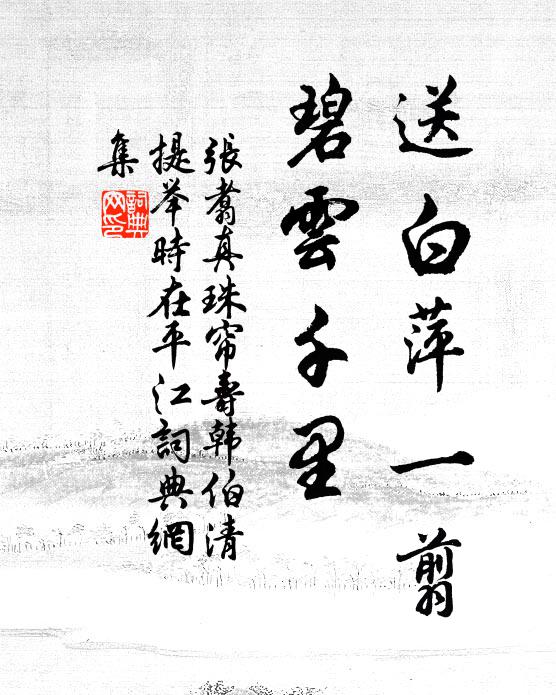 送白萍一翦
碧雲千里
張翥真珠帘壽韩伯清
提举時在平江詞典網
集
詞典
网印